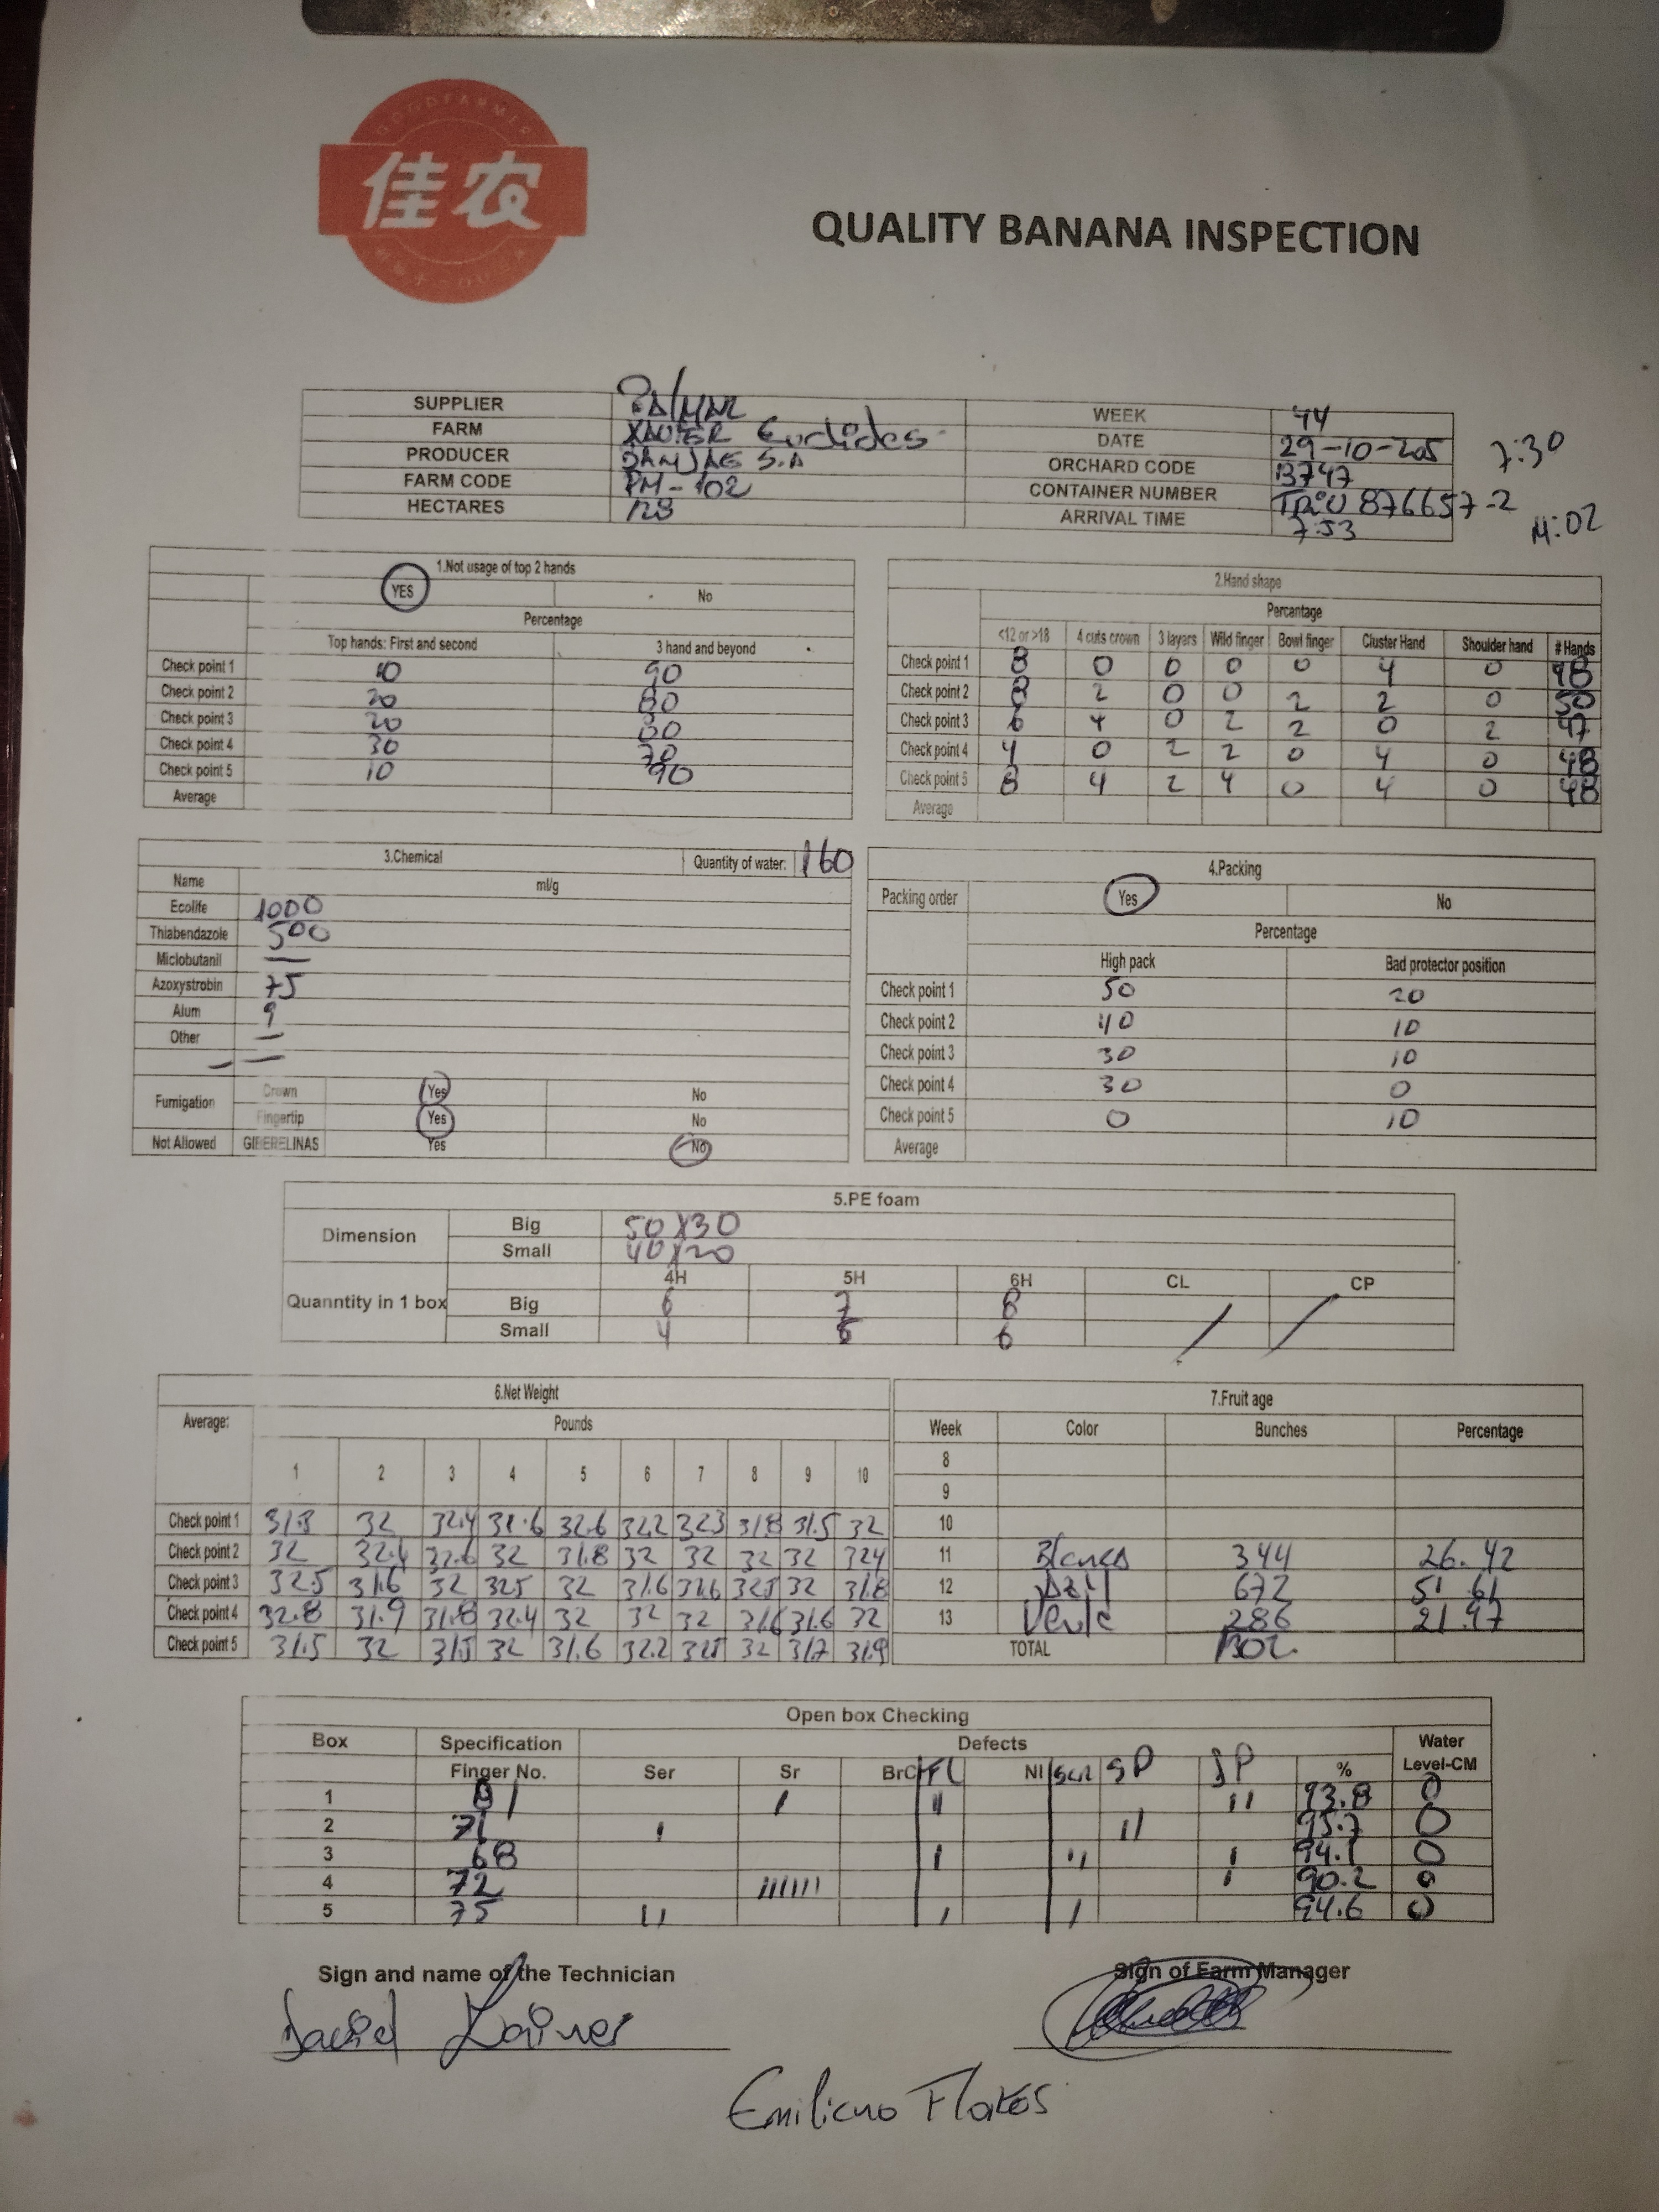 GOODFARMER
佳农
QUALITY BANANA INSPECTION
SUPPLIER PALMAR WEEK 44
FARM XAVIER Euclides DATE 29-10-205 7:30
PRODUCER BANJAE S.A ORCHARD CODE 13747
FARM CODE PM-102 CONTAINER NUMBER 876657-2
HECTARES 128 ARRIVAL TIME 7:53 11:02
1.Not usage of top 2 hands
YES No
Percentage
Top hands: First and second 3 hand and beyond
Check point 1 10 90
Check point 2 20 80
Check point 3 20 80
Check point 4 30 70
Check point 5 10 90
Average
2.Hand shape
Percentage
<12 or >18 4 cuts crown 3 layers Wild finger Bowl finger Cluster Hand Shoulder hand # Hands
Check point 1 8 0 0 0 0 4 0 48
Check point 2 8 2 0 0 2 2 0 50
Check point 3 6 4 0 2 2 0 2 47
Check point 4 4 0 2 2 0 4 0 48
Check point 5 8 4 2 4 0 4 0 48
Average
3.Chemical Quantity of water: 160
Name ml/g
Ecolife 1000
Thiabendazole 500
Miclobutanil —
Azoxystrobin 75
Alum 9
Other —
— —
Fumigation Crown Yes No
Fingertip Yes No
Not Allowed GIBERELINAS Yes No
4.Packing
Packing order Yes No
Percentage
High pack Bad protector position
Check point 1 50 20
Check point 2 40 10
Check point 3 30 10
Check point 4 30 0
Check point 5 0 10
Average
5.PE foam
Dimension Big 50X30
Small 40X20
4H 5H 6H CL CP
Quanntity in 1 box Big 6 7 8
Small 4 6
6.Net Weight
Average: Pounds
1 2 3 4 5 6 7 8 9 10
Check point 1 31.8 32 32.4 31.6 32.6 32.2 32.3 31.8 31.5 32
Check point 2 32 32.4 32.6 32 31.8 32 32 32 32 32.4
Check point 3 32.5 31.6 32 32.5 32 31.6 32.6 32.5 32 31.8
Check point 4 32.8 31.9 31.8 32.4 32 32 32 31.6 31.6 32
Check point 5 31.5 32 31.5 32 31.6 32.2 32 31.7 31.9
7.Fruit age
Week Color Bunches Percentage
8
9
10
11 Blanca 344 26.42
12 Azul 672 51.61
13 Verde 286 21.97
TOTAL 1302
Open box Checking
Box Specification Defects Water
Finger No. Ser Sr BrC FL NI scr SP JP % Level-CM
1 81 I II II 93.8 0
2 71 I II 95.7 0
3 68 I II I 94.1 0
4 72 IIIIII I 90.2 0
5 75 II I I 94.6 0
Sign and name of the Technician Sign of Farm Manager
David
Emiliano Flores